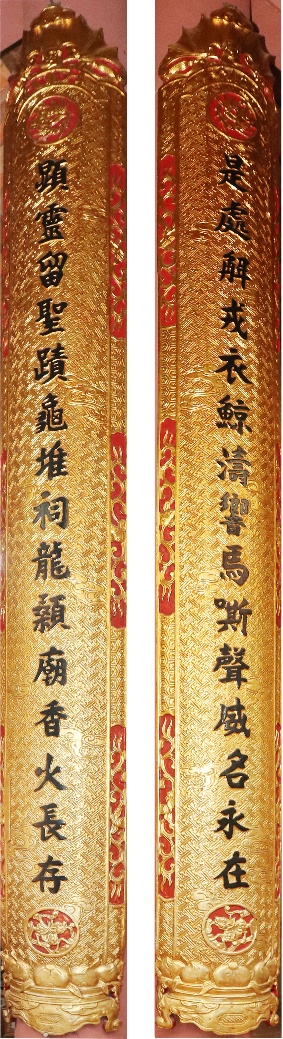 是處解戎衣鯨濤響馬嘶聲威名永在
顯靈留聖蹟龜堆祠龍額廟香火長存